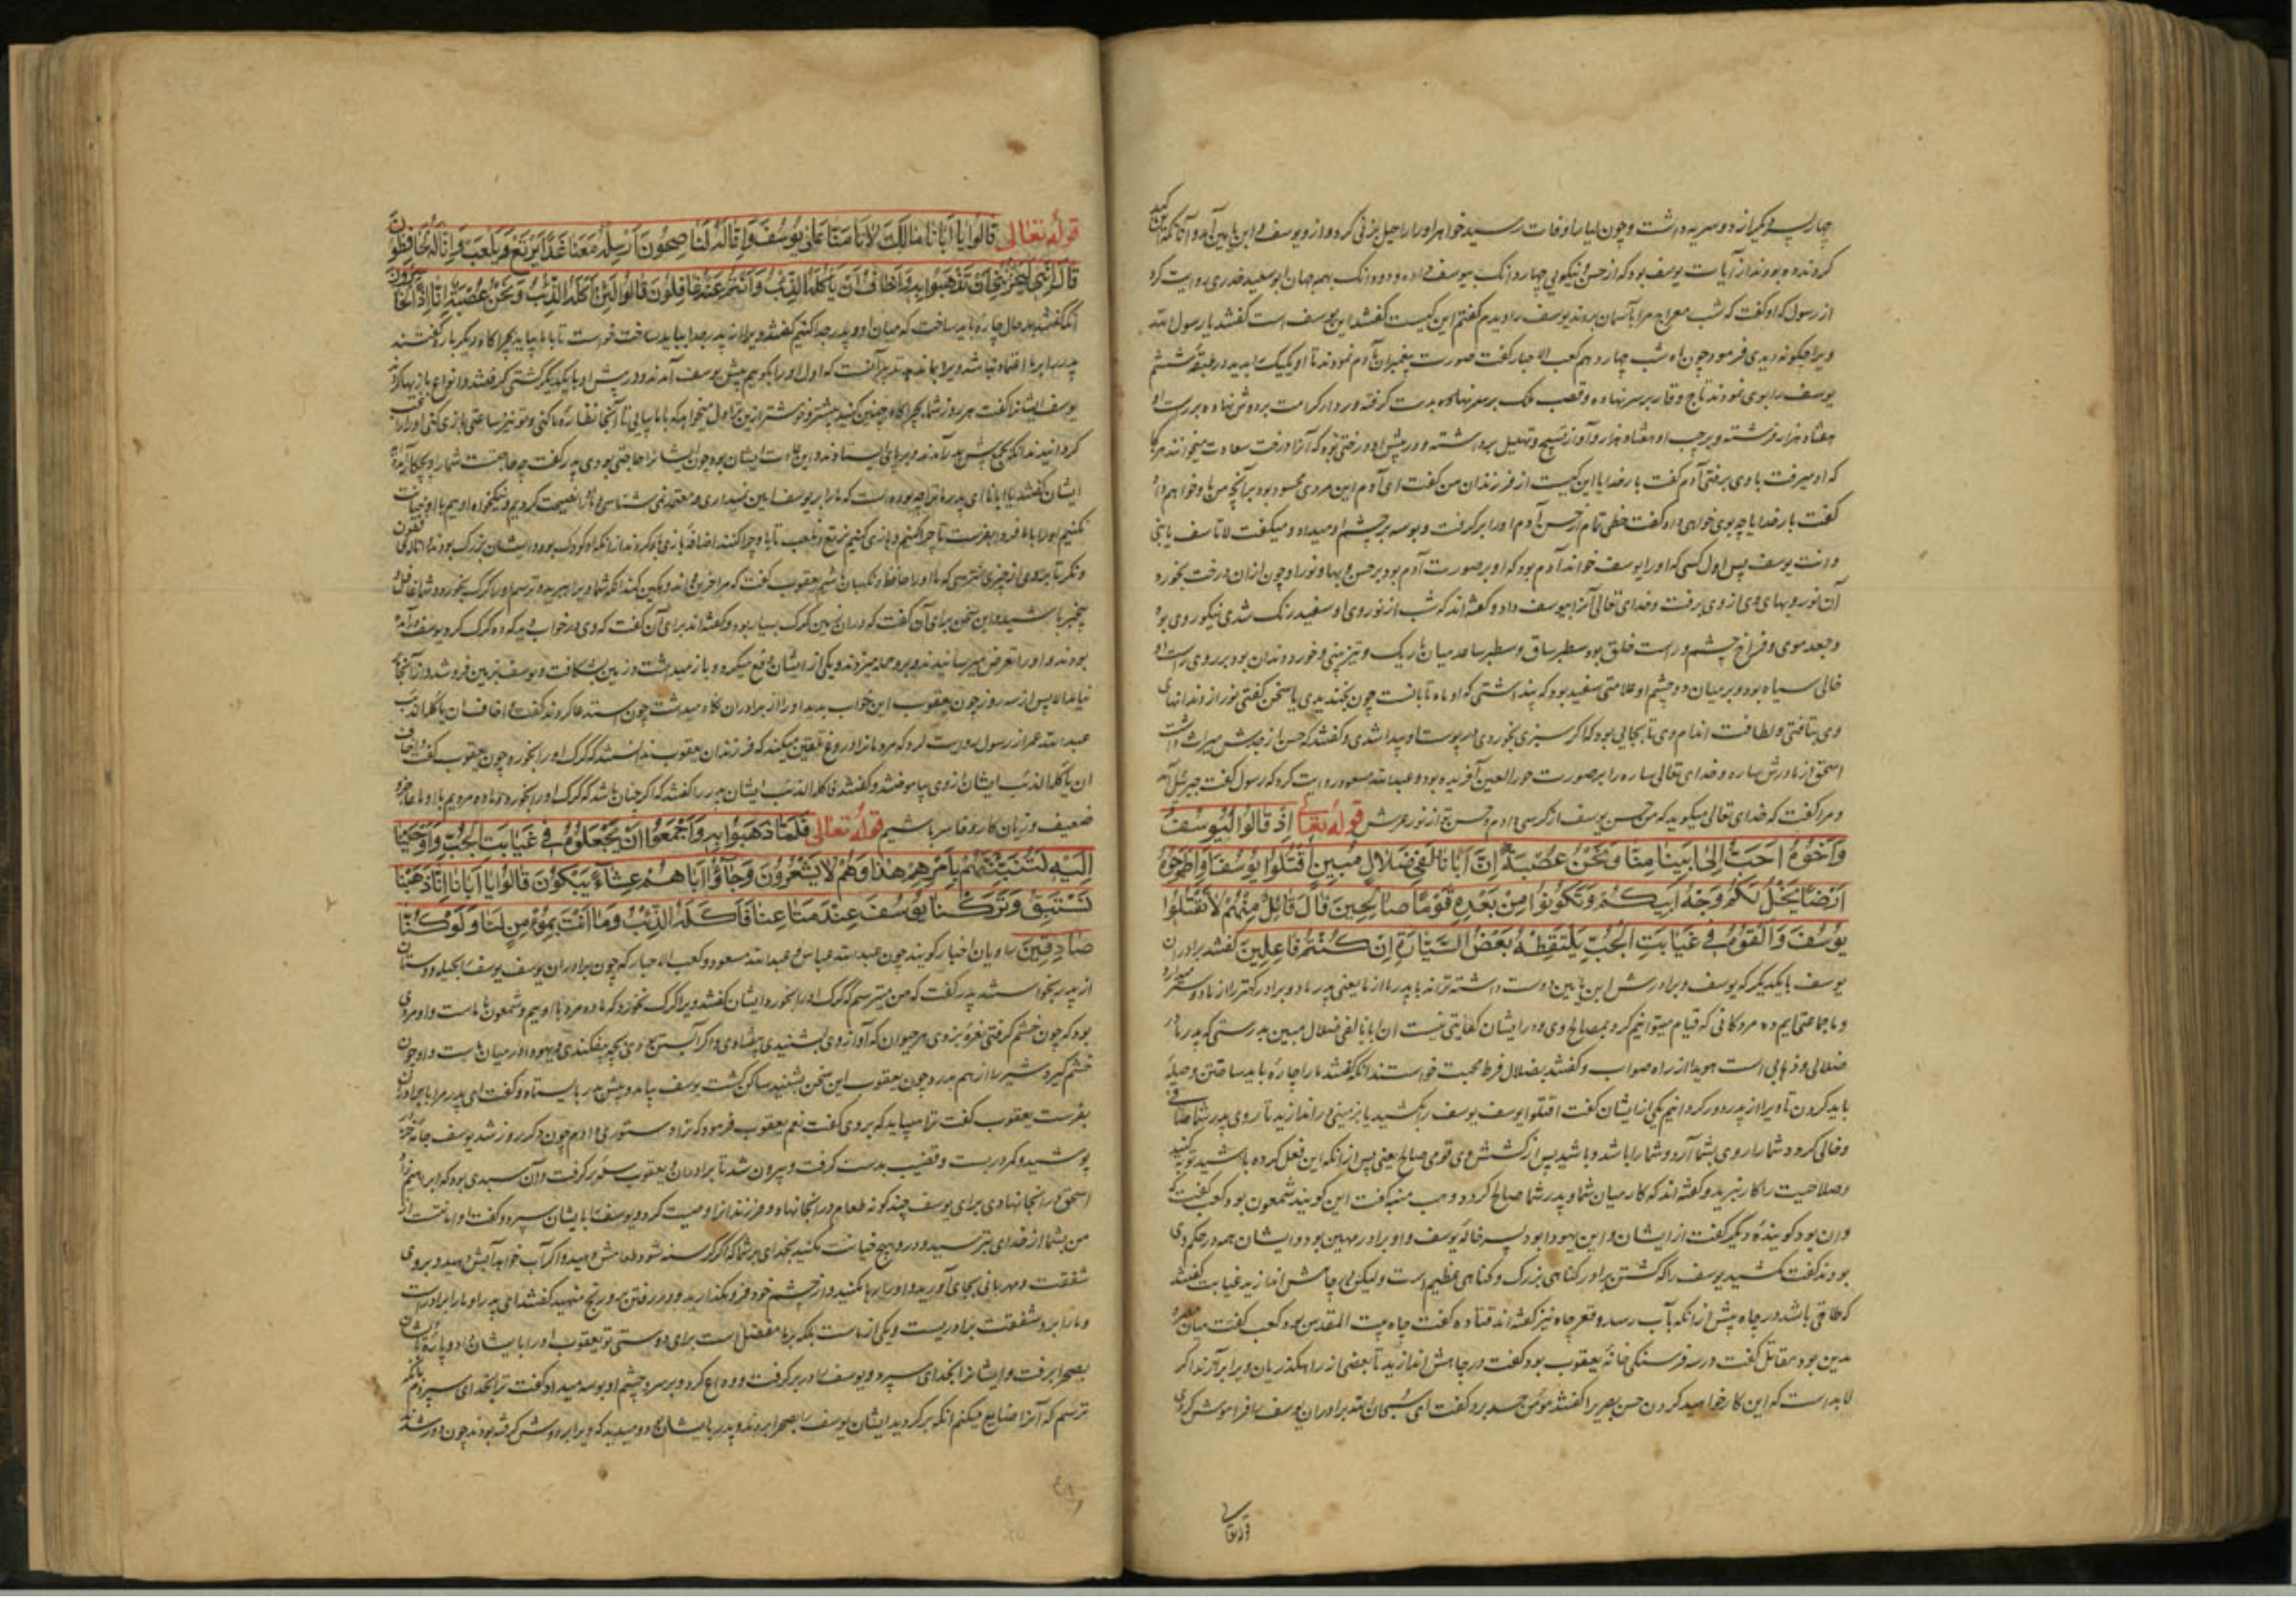 چهار پسر دیگر از دو سریه داشت و چون لیا را وفات رسید خواهر او را راحیل بزنی کرد و از و یوسف و ابن یامین آمد
کردند ده بودند از آیات یوسف بود که از حسن و نیکویی چهار دانک بیوسف داده و دو دانک بهمه جهان ابو سعید خدری روایت کرد
از رسول که او گفت که شب معراج مرا بآسمان بردند یوسف را دیدم گفتم این کیست گفتند این یوسف است گفتند یا رسول الله
ویرا چگونه دیدی فرمود چون ماه شب چهاردهم کعب الاحبار گفت صورت پیغمبران بآدم نمودند تا او یکیک را بدید در طبقه ششم
یوسف را بوی نمودند تاج وقار بر سر نهاده و قصب ملک بدست گرفته و ردای کرامت بر دوش نهاده بر راست او
هفتاد هزار فرشته و بر چپ او هفتاد هزار و آواز تسبیح و تهلیل برداشته و در پیش او درختی بود که آنرا درخت سعادت میخوانند هر کجا
که او میرفت با وی برفتی آدم گفت بار خدایا این کیست از فرزندان من گفت ای آدم این مردی محسود بود بر آنچه من باو خواهم داد
گفت بار خدایا چه بوی خواهی داد گفت حظی تمام از حسن آدم او را بر گرفت و بوسه بر چشم او میداد و میگفت لا تاسف یا بنی
وانت یوسف پس اول کسی که او را یوسف خواند آدم بود که او بر صورت آدم بود بر حسن و بها و نور او چون ازان درخت بخورد
آن نور و بهای وی از وی برفت و خدای تعالی آنرا بیوسف داد و گفته‌اند که شب از نور روی او سفید رنک شدی نیکو روی بود
و جعد موی و فراخ چشم و راست خلق بود سطبر ساق و سطبر ساعد میان باریک و تیز بینی و خورد دندان بود بر روی راست او
خالی سیاه بود و بر میان دو چشم او علامتی سفید بود که پنداشتی که او ماه تابانست چون بخندیدی یا سخن گفتی نور از دندانهای
وی بتافتی و لطافت اندام وی تا بجائی بود که اگر سبزی بخوردی در پوست او پیدا شدی و گفتند که حسن از جدش میراث داشت
اسحق از مادرش ساره و خدای تعالی ساره را بر صورت حور العین آفریده بود و عبد الله مسعود روایت کرد که رسول گفت جبرئیل آمد
و مرا گفت که خدای تعالی میگوید که من حسن یوسف از کرسی دادم و حسن تو از نور عرش قوله تعالی اذ قالوا لیوسف
وَاَخُوهُ اَحَبُّ اِلٰی اَبینا مِنّا وَنَحْنُ عُصْبَةٌ اِنَّ اَبانا لَفی ضَلالٍ مُبینٍ اُقْتُلُوا یُوسُفَ اَوِ اطْرَحُوهُ
اَرْضًا یَخْلُ لَکُمْ وَجْهُ اَبیکُمْ وَتَکُونُوا مِنْ بَعْدِهِ قَوْمًا صالِحینَ قالَ قائِلٌ مِنْهُمْ لا تَقْتُلُوا
یُوسُفَ وَاَلْقُوهُ فی غَیابَتِ الْجُبِّ یَلْتَقِطْهُ بَعْضُ السَّیّارَةِ اِنْ کُنْتُمْ فاعِلینَ گفتند برادران
یوسف با یکدیگر که یوسف و برادرش ابن یامین دوست داشته‌تراند با پدر ما از ما یعنی پدر ما دو برادر کهتر را از ما دوستر میدارد
و ما جماعتی ایم ده مرد کافی که قیام میتوانیم کرد بمصالح وی و در ایشان کفایتی نیست ان ابانا لفی ضلال مبین بدرستی که پدر ما در
ضلالی و ذهابی است هویدا از راه صواب و گفتند بضلال فرط محبت خواستند آنکه گفتند ما را چاره باید ساختن و حیلهٔ
باید کردن تا ویرا از پدر دور گردانیم یکی از ایشان گفت اقتلوا یوسف یوسف را بکشید یا بزمینی در اندازید تا روی پدر شما صافی
و خالی کردد شما را روی بشما آرد و شما را باشد و باشید پس از کشتن وی قومی صالح یعنی پس از آنکه این فعل کرده باشید توبه کنید
و صلاحیت را کار بزید و گفته‌اند که کار میان شما و پدر شما صالح کردد وهب منبه گفت این گوینده شمعون بود کعب گفت که
دان بود گوینده دیگر گفت از ایشان و این یهودا بود پسر خاله یوسف و او برادر مهین بود و ایشان همه در حکم وی
بودند گفت مکشید یوسف را که کشتن برادر گناهی بزرک و گناهی عظیم است ولیکن در چاهش اندازید غیابت گفتند
که طاقی باشد در چاه پیش از آنکه بآب رسد و قعر چاه نیز گفته‌اند قتاده گفت چاه بیت المقدس بود کعب گفت میان مصر و
مدین بود مقاتل گفت در سه فرسنگی خانه یعقوب بود گفت در چاهش اندازید تا بعضی از راهگذریان ویرا برآرند اگر
لا بد است که این کار خواهید کردن حسن بصیر را گفتند مؤمن حسد برد گفت ای سبحان الله برادران یوسف را فراموش کردی
قوله تعالی
قوله تعالی قالُوا یا اَبانا مالَکَ لا تَأمَنّا عَلٰی یُوسُفَ وَاِنّا لَهُ لَناصِحُونَ اَرْسِلْهُ مَعَنا غَدًا یَرْتَعْ وَیَلْعَبْ وَاِنّا لَهُ لَحافِظُونَ
قالَ اِنّی لَیَحْزُنُنی اَنْ تَذْهَبُوا بِهِ وَاَخافُ اَنْ یَأکُلَهُ الذِّئْبُ وَاَنْتُمْ عَنْهُ غافِلُونَ قالُوا لَئِنْ اَکَلَهُ الذِّئْبُ وَنَحْنُ عُصْبَةٌ اِنّا اِذًا لَخاسِرُونَ
آنکه گفتند در حال چاره باید ساخت که میان او و پدر جدا کنیم گفتند ویرا از پدر جدا بباید ساخت خواست تا با ما بیاید بچراکاه دیگر باره گفتند
پدر ما بر ما اعتماد نباشد ویرا بما ندهد تدبیر آنست که اول او را بگوییم پیش یوسف آمدند و در پیش او با یکدیگر کشتی گرفتند و انواع بازیها کردند
یوسف ایشانرا گفت هر روز شما بچراکاه چنین کنید
کردانیدند آنکه بیش پدر آمدند و بر پای ایستادند و این عادت ایشان بود چون ایشانرا حاجتی بودی پدر گفت چه حاجتست شما را و بچه کار آمده اید
ایشان گفتند یا ابانا ای پدر ما ترا چه بوده است که ما را بر یوسف امین نمیداری و معتمد نمی شناسی
نکنیم او را با ما فردا بفرست تا چرا کنیم و بازی کنیم نرتع و نلعب
و نگر تا بر وی از چیزی نترسی که ما او را حافظ و نگهبان باشیم یعقوب گفت که مرا حزین و اندوهگین کند آنکه شما ویرا ببرید و ترسم او را گرگ بخورد و شما غافل و
بیخبر باشید و این سخن برای آن گفت که دران زمین گرگ بسیار بود و گفته‌اند برای آن گفت که وی در خواب دید که ده گرگ گرد یوسف درآمده
بودند و او را تعرض میرسانیدند و برو حمله میبردند و یکی از ایشان دفع میکرد و باز میداشت و زمین بشکافت و یوسف بزمین فرو شد و از آنجا
نیامد الا پس از سه روز چون یعقوب این خواب بدید او را از برادران نگاه میداشت چون استدعا کردند گفت و اخاف ان یأکله الذئب
عبد الله عمر از رسول روایت کرد که مردمانرا دروغ تلقین میکنید که فرزندان یعقوب ندانستند که گرگ او را بخورد چون یعقوب گفت و اخاف
ان یأکله الذئب ایشان از وی بیاموختند و گفتند فاکله الذئب ایشان پدر را گفتند که اگر چنان باشد که گرگ او را بخورد و ما ده مردیم با او ما عاجز و
ضعیف و زیان کار و خاسر باشیم قوله تعالی فَلَمّا ذَهَبُوا بِهِ وَاَجْمَعُوا اَنْ یَجْعَلُوهُ فی غَیابَتِ الْجُبِّ وَاَوْحَیْنا
اِلَیْهِ لَتُنَبِّئَنَّهُمْ بِاَمْرِهِمْ هٰذا وَهُمْ لا یَشْعُرُونَ وَجاؤُا اَباهُمْ عِشاءً یَبْکُونَ قالُوا یا اَبانا اِنّا ذَهَبْنا
نَسْتَبِقُ وَتَرَکْنا یُوسُفَ عِنْدَ مَتاعِنا فَاَکَلَهُ الذِّئْبُ وَما اَنْتَ بِمُؤْمِنٍ لَنا وَلَوْ کُنّا
صادِقینَ راویان اخبار گویند چون عبد الله عباس و عبد الله مسعود و کعب الاحبار که چون برادران یوسف یوسف را بحیله و دستان
از پدر بخواستند پدر گفت که من میترسم که گرگ او را بخورد ایشان گفتند ویرا گرگ نخورد که ما ده مرد با اوییم و شمعون با ماست و او مردی
بود که چون خشم گرفتی نعره بزدی هر حیوان که آواز وی بشنیدی بیفتادی و اگر آبستن بودی بچه بیفکندی و یهودا در میان ماست و او چون
خشم گیرد شیر را از هم بدرد چون یعقوب این سخن بشنید ساکن گشت یوسف بیامد و پیش پدر بایستاد و گفت ای پدر مرا با برادران
بفرست یعقوب گفت ترا میباید که بروی گفت نعم یعقوب فرمود که ترا دستوری دادم چون دگر روز شد یوسف جامه در
پوشید و کمر در بست و قضیب بدست گرفت و بیرون شد با برادران و یعقوب سله بر گرفت و آن سبدی بود که ابراهیم زاد
اسحق در آنجا نهادی برای یوسف چند گونه طعام در آنجا نهاد و فرزندانرا وصیت کرد و یوسف را بایشان سپرد و گفت او امانتست از
من بشما از خدای بترسید و در و هیچ خیانت مکنید بخدای بر شما که اگر گرسنه شود طعامش دهید و اگر آب خواهد آبش دهید و بر وی
شفقت و مهربانی بجای آورید و او را رها مکنید و از چشم خود فرو مگذارید و در رفتن بر و رنج منهید گفتند ای پدر او ما را برادر است
و ما را برو شفقت برادریست و یکی از ماست بلکه بر ما مفضل است برای دوستی تو یعقوب او را بایشان داد و پاره با ایشان
بصحرا برفت و ایشانرا بخدای سپرد و یوسف را در بر گرفت و وداع کرد و بر سر و چشم او بوسه میداد گفت ترا بخدای سپردم
ترسم که آنرا ضایع میکنم آنکه برگردید ایشان یوسف را بصحرا بردند و پدر بایشان میدید که ویرا بر دوش گرفته بودند چون دور شدند